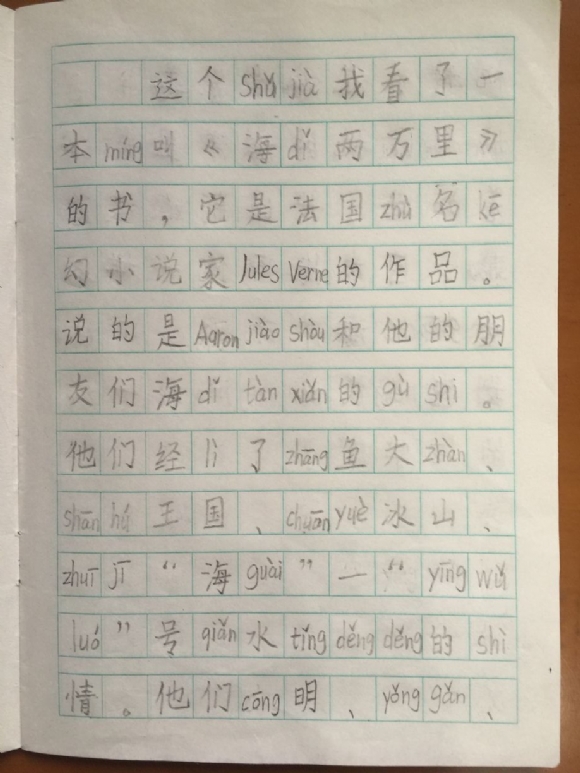 这个shǔ jià我看了一
本míng叫《海dǐ两万里》
的书，它是法国zhù名kē
幻小说家Jules Verne的作品。
说的是Aaron jiào shòu和他的朋
友们海dǐ tàn xiǎn的gù shi。
他们经lì了zhāng鱼大zhàn、
shān hú王国、chuān yuè冰山、
zhuī jī“海guài”—“yīng wǔ
luó”号qiǎn水tǐng děng děng的shì
情。他们cōng明、yǒng gǎn、